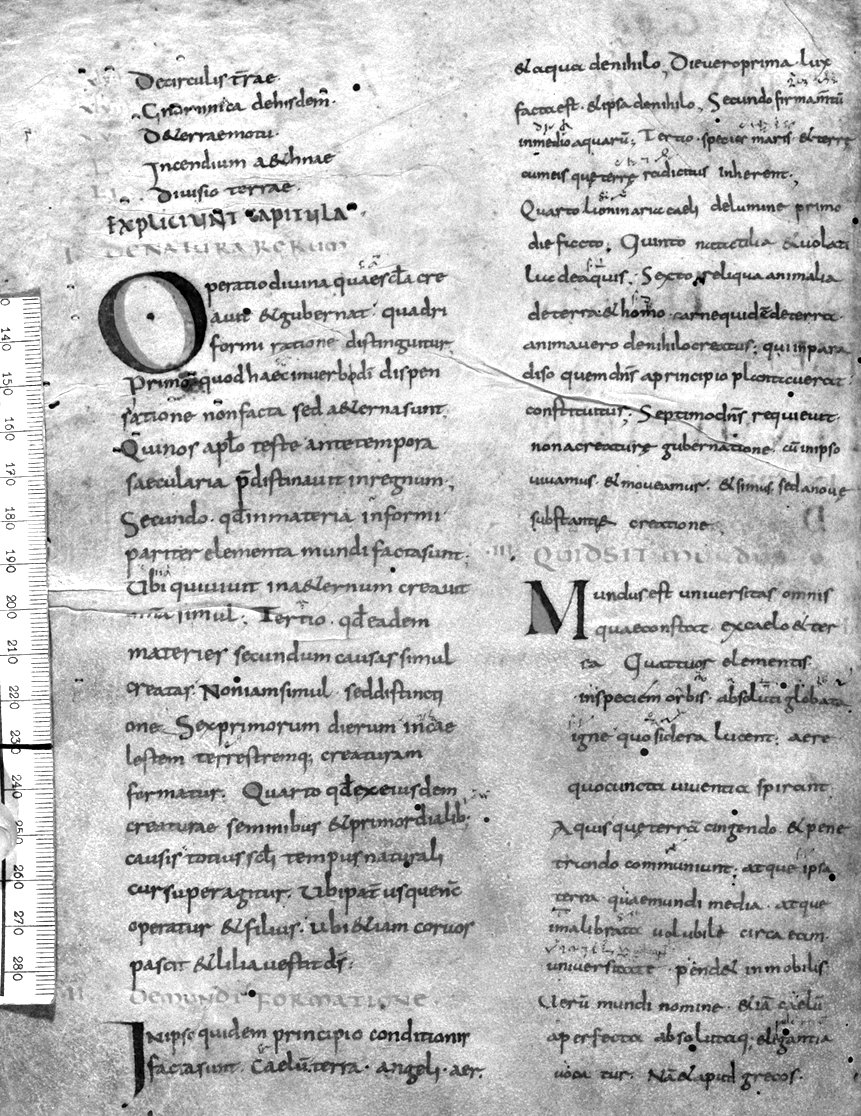 De circulis t̄rae.
Cur differentia de hisdem̄.
De terrae motu.
Incendium aethnae
Diuisio terrae.
EXPLICIUNT CAPITULA.
I. DE NATURA RERUM
Operatio diuina quae sc̄la cre
auit & gubernat. quadri
formi ratione distinguitur
Primo quod haec in uerbo d̄i dispen
satione non facta sed aeterna sunt.
Qui nos ap̄lo teste ante tempora
saecularia p̄distinauit in regnum,
Secundo. qđ in materia informi
pariter elementa mundi facta sunt.
Ubi qui uiuit in aeternum creauit
om̄a simul. Tertio. qđ eadem
materies secundum causas simul
creatas. Non iam simul. sed distincti
one. Sex primorum dierum in cae
lestem terrestremq; creaturam
formatur. Quarto qđ ex eiusdem
creaturae seminibus & primordialib;
causis totius sc̄li tempus naturali
cursu peragitur. Ubi pat̄ usque n̄c
operatur & filius. ubi etiam coruos
pascit & lilia uestit d̄s;
II DE MUNDI FORMATIONE
In ipso quidem principio conditionis
facta sunt. caelū terra. angeli. aer.
& aqua de nihilo, Die uero prima. lux
facta est. & ipsa de nihilo, Secundo firmam̄tū
in medio aquarū; Tertio. species maris & terrę
cum eis quę terrę radicitus inherent.
Quarto luminaria caeli de lumine primo
die facto. Quinto natatilia & uolati
lia de aquis. Sexto reliqua animalia
de terra. & homo. carne quidē de terra.
anima uero de nihilo creatus; qui in para
diso quem dn̄s a principio plantauerat.
constituitur; Septimo dn̄s requieuit.
non a creaturę gubernatione. cū in ipso
uiuamus. & moueamur. & simus sed a nouę
substantię creatione.
III QUID SIT MUNDUS
Mundus est uniuersitas omnis
quae constat. ex caelo & ter
ra Quattuor elementis.
in speciem orbis. absoluti globata.
igne quo sidera lucent. aere
quo cuncta uiuentia spirant.
Aquis que terrā cingendo. & pene
trando communiunt. atque ipsa
terra quae mundi media. atque
ima librata uolubili circa eam.
uniuersitate pendet inmobilis
Uerū mundi nomine. etiā caelū
a perfecta absolutaq; elegantia
uoca tur. Nā & apud grecos.